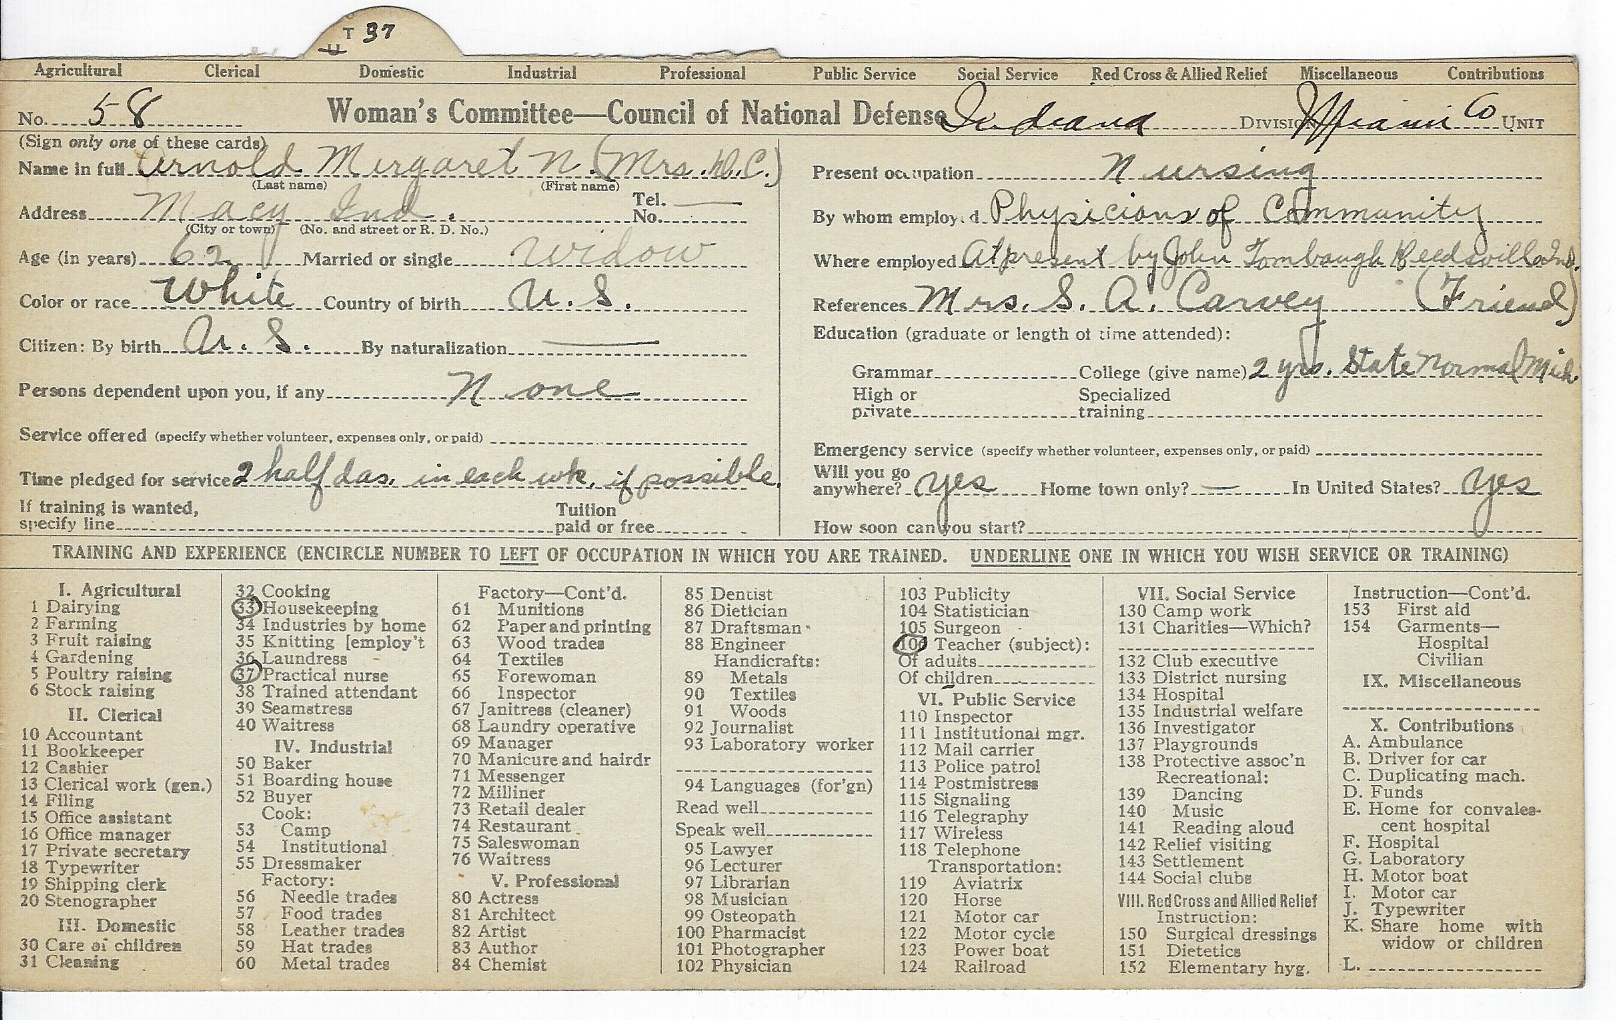 T 37
U
Agricultural Clerical Domestic Industrial Professional Public Service Social Service Red Cross & Allied Relief Miscellaneous Contributions
No. 58 Woman's Committee—Council of National Defense Indiana DIVISION Miami Co UNIT
(Sign only one of these cards)
Name in full Arnold Mergaret N. (Mrs. H. C.)
(Last name) (First name)
Address Macy Ind. Tel. No. —
(City or town) (No. and street or R. D. No.)
Age (in years) 62 Married or single widow
Color or race White Country of birth U. S.
Citizen: By birth U. S. By naturalization —
Persons dependent upon you, if any None
Service offered (specify whether volunteer, expenses only, or paid)
Time pledged for service 2 half das. in each wk. if possible.
If training is wanted, specify line Tuition paid or free
Present occupation Nursing
By whom employed Physicians of Community
Where employed At present by John Tombaugh Reedsville Ind.
References Mrs. S. A. Carvey (Friend)
Education (graduate or length of time attended):
Grammar College (give name) 2 yrs. State Normal Mich.
High or private Specialized training
Emergency service (specify whether volunteer, expenses only, or paid)
Will you go anywhere? yes Home town only? — In United States? yes
How soon can you start?
TRAINING AND EXPERIENCE (ENCIRCLE NUMBER TO LEFT OF OCCUPATION IN WHICH YOU ARE TRAINED. UNDERLINE ONE IN WHICH YOU WISH SERVICE OR TRAINING)
I. Agricultural
1 Dairying
2 Farming
3 Fruit raising
4 Gardening
5 Poultry raising
6 Stock raising
II. Clerical
10 Accountant
11 Bookkeeper
12 Cashier
13 Clerical work (gen.)
14 Filing
15 Office assistant
16 Office manager
17 Private secretary
18 Typewriter
19 Shipping clerk
20 Stenographer
III. Domestic
30 Care of children
31 Cleaning
32 Cooking
33 Housekeeping
34 Industries by home
35 Knitting [employ't
36 Laundress
37 Practical nurse
38 Trained attendant
39 Seamstress
40 Waitress
IV. Industrial
50 Baker
51 Boarding house
52 Buyer
Cook:
53 Camp
54 Institutional
55 Dressmaker
Factory:
56 Needle trades
57 Food trades
58 Leather trades
59 Hat trades
60 Metal trades
Factory—Cont'd.
61 Munitions
62 Paper and printing
63 Wood trades
64 Textiles
65 Forewoman
66 Inspector
67 Janitress (cleaner)
68 Laundry operative
69 Manager
70 Manicure and hairdr
71 Messenger
72 Milliner
73 Retail dealer
74 Restaurant
75 Saleswoman
76 Waitress
V. Professional
80 Actress
81 Architect
82 Artist
83 Author
84 Chemist
85 Dentist
86 Dietician
87 Draftsman
88 Engineer
Handicrafts:
89 Metals
90 Textiles
91 Woods
92 Journalist
93 Laboratory worker
94 Languages (for'gn)
Read well
Speak well
95 Lawyer
96 Lecturer
97 Librarian
98 Musician
99 Osteopath
100 Pharmacist
101 Photographer
102 Physician
103 Publicity
104 Statistician
105 Surgeon
106 Teacher (subject):
Of adults
Of children
VI. Public Service
110 Inspector
111 Institutional mgr.
112 Mail carrier
113 Police patrol
114 Postmistress
115 Signaling
116 Telegraphy
117 Wireless
118 Telephone
Transportation:
119 Aviatrix
120 Horse
121 Motor car
122 Motor cycle
123 Power boat
124 Railroad
VII. Social Service
130 Camp work
131 Charities—Which?
132 Club executive
133 District nursing
134 Hospital
135 Industrial welfare
136 Investigator
137 Playgrounds
138 Protective assoc'n
Recreational:
139 Dancing
140 Music
141 Reading aloud
142 Relief visiting
143 Settlement
144 Social clubs
VIII. Red Cross and Allied Relief
Instruction:
150 Surgical dressings
151 Dietetics
152 Elementary hyg.
Instruction—Cont'd.
153 First aid
154 Garments—
Hospital
Civilian
IX. Miscellaneous
X. Contributions
A. Ambulance
B. Driver for car
C. Duplicating mach.
D. Funds
E. Home for convales-
cent hospital
F. Hospital
G. Laboratory
H. Motor boat
I. Motor car
J. Typewriter
K. Share home with
widow or children
L.